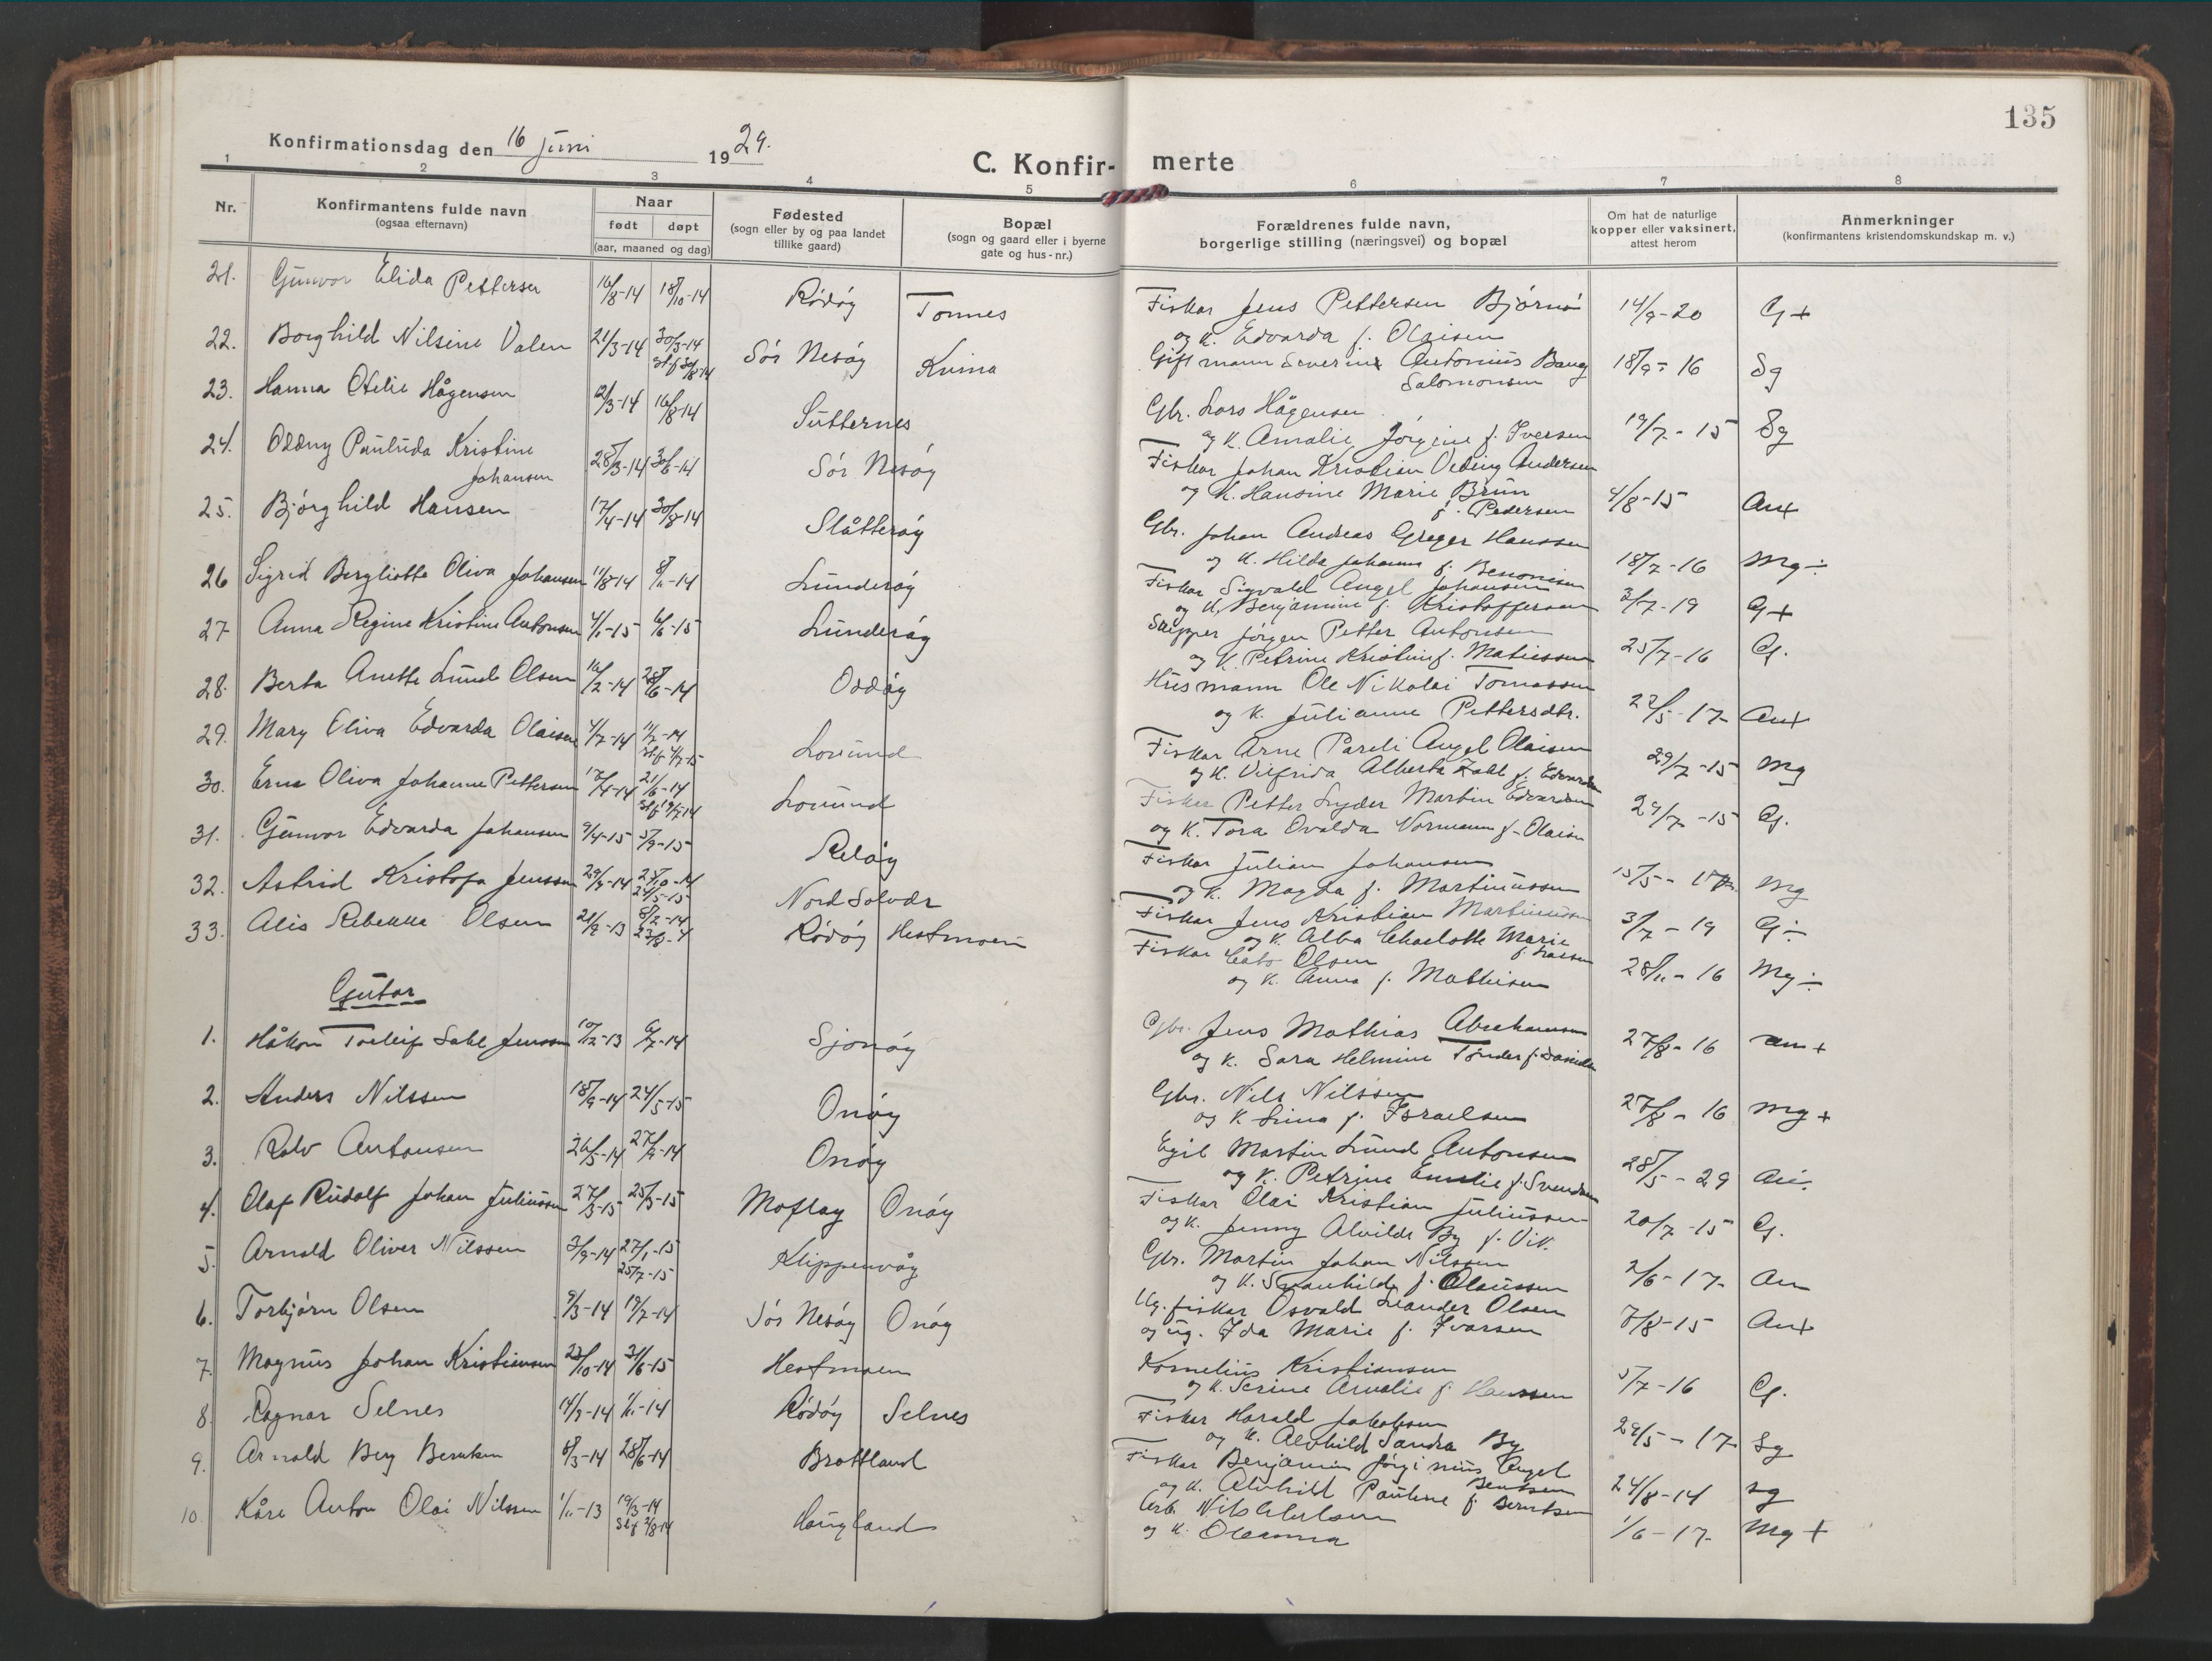 135
Konfirmationsdag den 16 juni 1929.
C. Konfirmerte
1 2 3 4 5 6 7 8
Nr.
Konfirmantens fulde navn
(ogsaa efternavn)
Naar
født døpt
(aar, maaned og dag)
Fødested
(sogn eller by og paa landet
tillike gaard)
Bopæl
(sogn og gaard eller i byerne
gate og hus-nr.)
Forældrenes fulde navn,
borgerlige stilling (næringsvei) og bopæl
Om hat de naturlige
kopper eller vaksinert,
attest herom
Anmerkninger
(konfirmantens kristendomskundskap m. v.)
21. Gunvor Elida Pettersen 16/8-14 18/10-14 Rødøy Tonnes Fiskar Jens Pettersen Bjørnø 14/9-20 G+
og K. Edvarda f. Olaisen
22. Borghild Nilsine Valen 21/3-14 30/3-14 Sør Nesøy Kvina Gift mann Severin Antonius Bang 18/9-16 Sg
Salomonsen
23. Hanna Otelie Hågensen 12/3-14 16/8-14 Sutternes Gbr. Lars Hågensen 19/7-15 Sg
og K. Amalie Jørgine f. Iversen
24. Oddny Paulida Kristine 28/3-14 30/6-14 Sør Nesøy Fiskar Johan Kristian Veding Andersen
Johansen og K. Hansine Marie Brun 4/8-15 Am+
f. Pedersen
25. Bjørghild Hansen 17/4-14 30/8-14 Slåtterøy Gbr. Johan Andreas Greger Hanssen 18/7-16 Mg÷
og K. Hilda Johanna f. Benonisen
26 Sigrid Bergliotte Oliva Johansen 11/8-14 8/11-14 Lunderøy Fiskar Sigvald Angel Johansen 3/7-19 G+
og K. Benjamine f. Kristoffersen
27 Anna Regine Kristine Antonsen 4/1-15 6/6-15 Lunderøy Skipper Jørgen Petter Antonsen 25/7-16 G.
og K. Petrine Kristine f. Matiessen
28. Berta Anette Lund Olsen 16/2-14 28/6-14 Oddøy Husmann Ole Nikolai Tomassen 22/5-17 Am+
og K. Julianne Pettersdtr.
29. Mary Oliva Edvarda Olaisen 4/7-14 11/7-14 Lovund Fiskar Arne Pareli Angel Olaisen 29/7-15 Mg
og K. Vilfrida Alberta Zahl f. Edvardsen
30. Erna Oliva Johanne Pettersen 17/4-14 21/6-14 Lovund Fisker Petter Lyder Martin Edvardsen 29/7-15 G.
og K. Tora Ovalda Normann f. Olaisen
31. Gunvor Edvarda Johansen 9/4-15 5/9-15 Reløy Fiskar Julian Johansen 15/5-17 Mg
og K. Magda f. Martinussen
32. Astrid Kristofa Jenssen 29/9-14 25/10-14 Nord Solvær Fiskar Jens Kristian Martinussen 3/7-19 G÷
24/5-15 og K. Alba Charlotte Marie
f. Larsen
33. Alis Rebekka Olsen 21/12-13 8/2-14 Rødøy Hestmoen Fiskar Olsen 28/11-16 Mg÷
og K. Anna f. Mathisen
Gutar
1. Håkon Torleif Dahl Jenssen 10/12-13 6/7-14 Sjonøy Gbr. Jens Mathias Abrahamsen 27/8-16 am+
og K. Sara Helmine Tønder f. Danielsen
2. Anders Nilssen 18/9-14 24/5-15 Onøy Gbr. Nils Nilssen 27/8-16 Mg+
og K Lina f. Israelsen
3. Rolv Antonsen 26/5-14 27/9-14 Onøy Egil Martin Lund Antonsen 28/5-29
og K. Petrine Emelie f. Svendsen
4. Olaf Rudolf Johan Juliussen 27/3-15 25/3-15 Moflag Onøy Fiskar Olai Kristian Juliussen 20/7-15 G.
og K. Jenny Alvilde By f. Vik.
5. Arnold Oliver Nilssen 3/9-14 27/1-15 Klippenvåg Gbr. Martin Johan Nilssen 2/6-17 Am
25/7-15 og K. Svanhilde f. Olaussen
6. Torbjørn Olsen 9/3-14 19/7-14 Sør Nesøy Onøy Ug. fiskar Osvald Leander Olsen 7/8-15 Am+
og ug. Ida Marie f. Ivarsen
7. Magnus Johan Kristiansen 23/10-14 3/6-15 Hestmoen Kornelius Kristiansen 5/7-16 G.
og K. Serine Amalie f. Hanssen
8. Ragnar Selnes 14/9-14 1/11-14 Rødøy Selnes Fisker Harald Jakobsen 29/5-17 Sg
og K. Alvhild Sandra By
9. Arnold Berg Berntsen 8/3-14 28/6-14 Brattland Fiskar Benjamin Jørginus Angel 24/8-14 sg
Bentsen
og K. Alvhild Pauline f. Berntsen
10. Kåre Anton Olai Nilssen 1/11-13 19/3-14 Haugland Arb. Nils 1/6-17 Mg+
og K. Oleanna